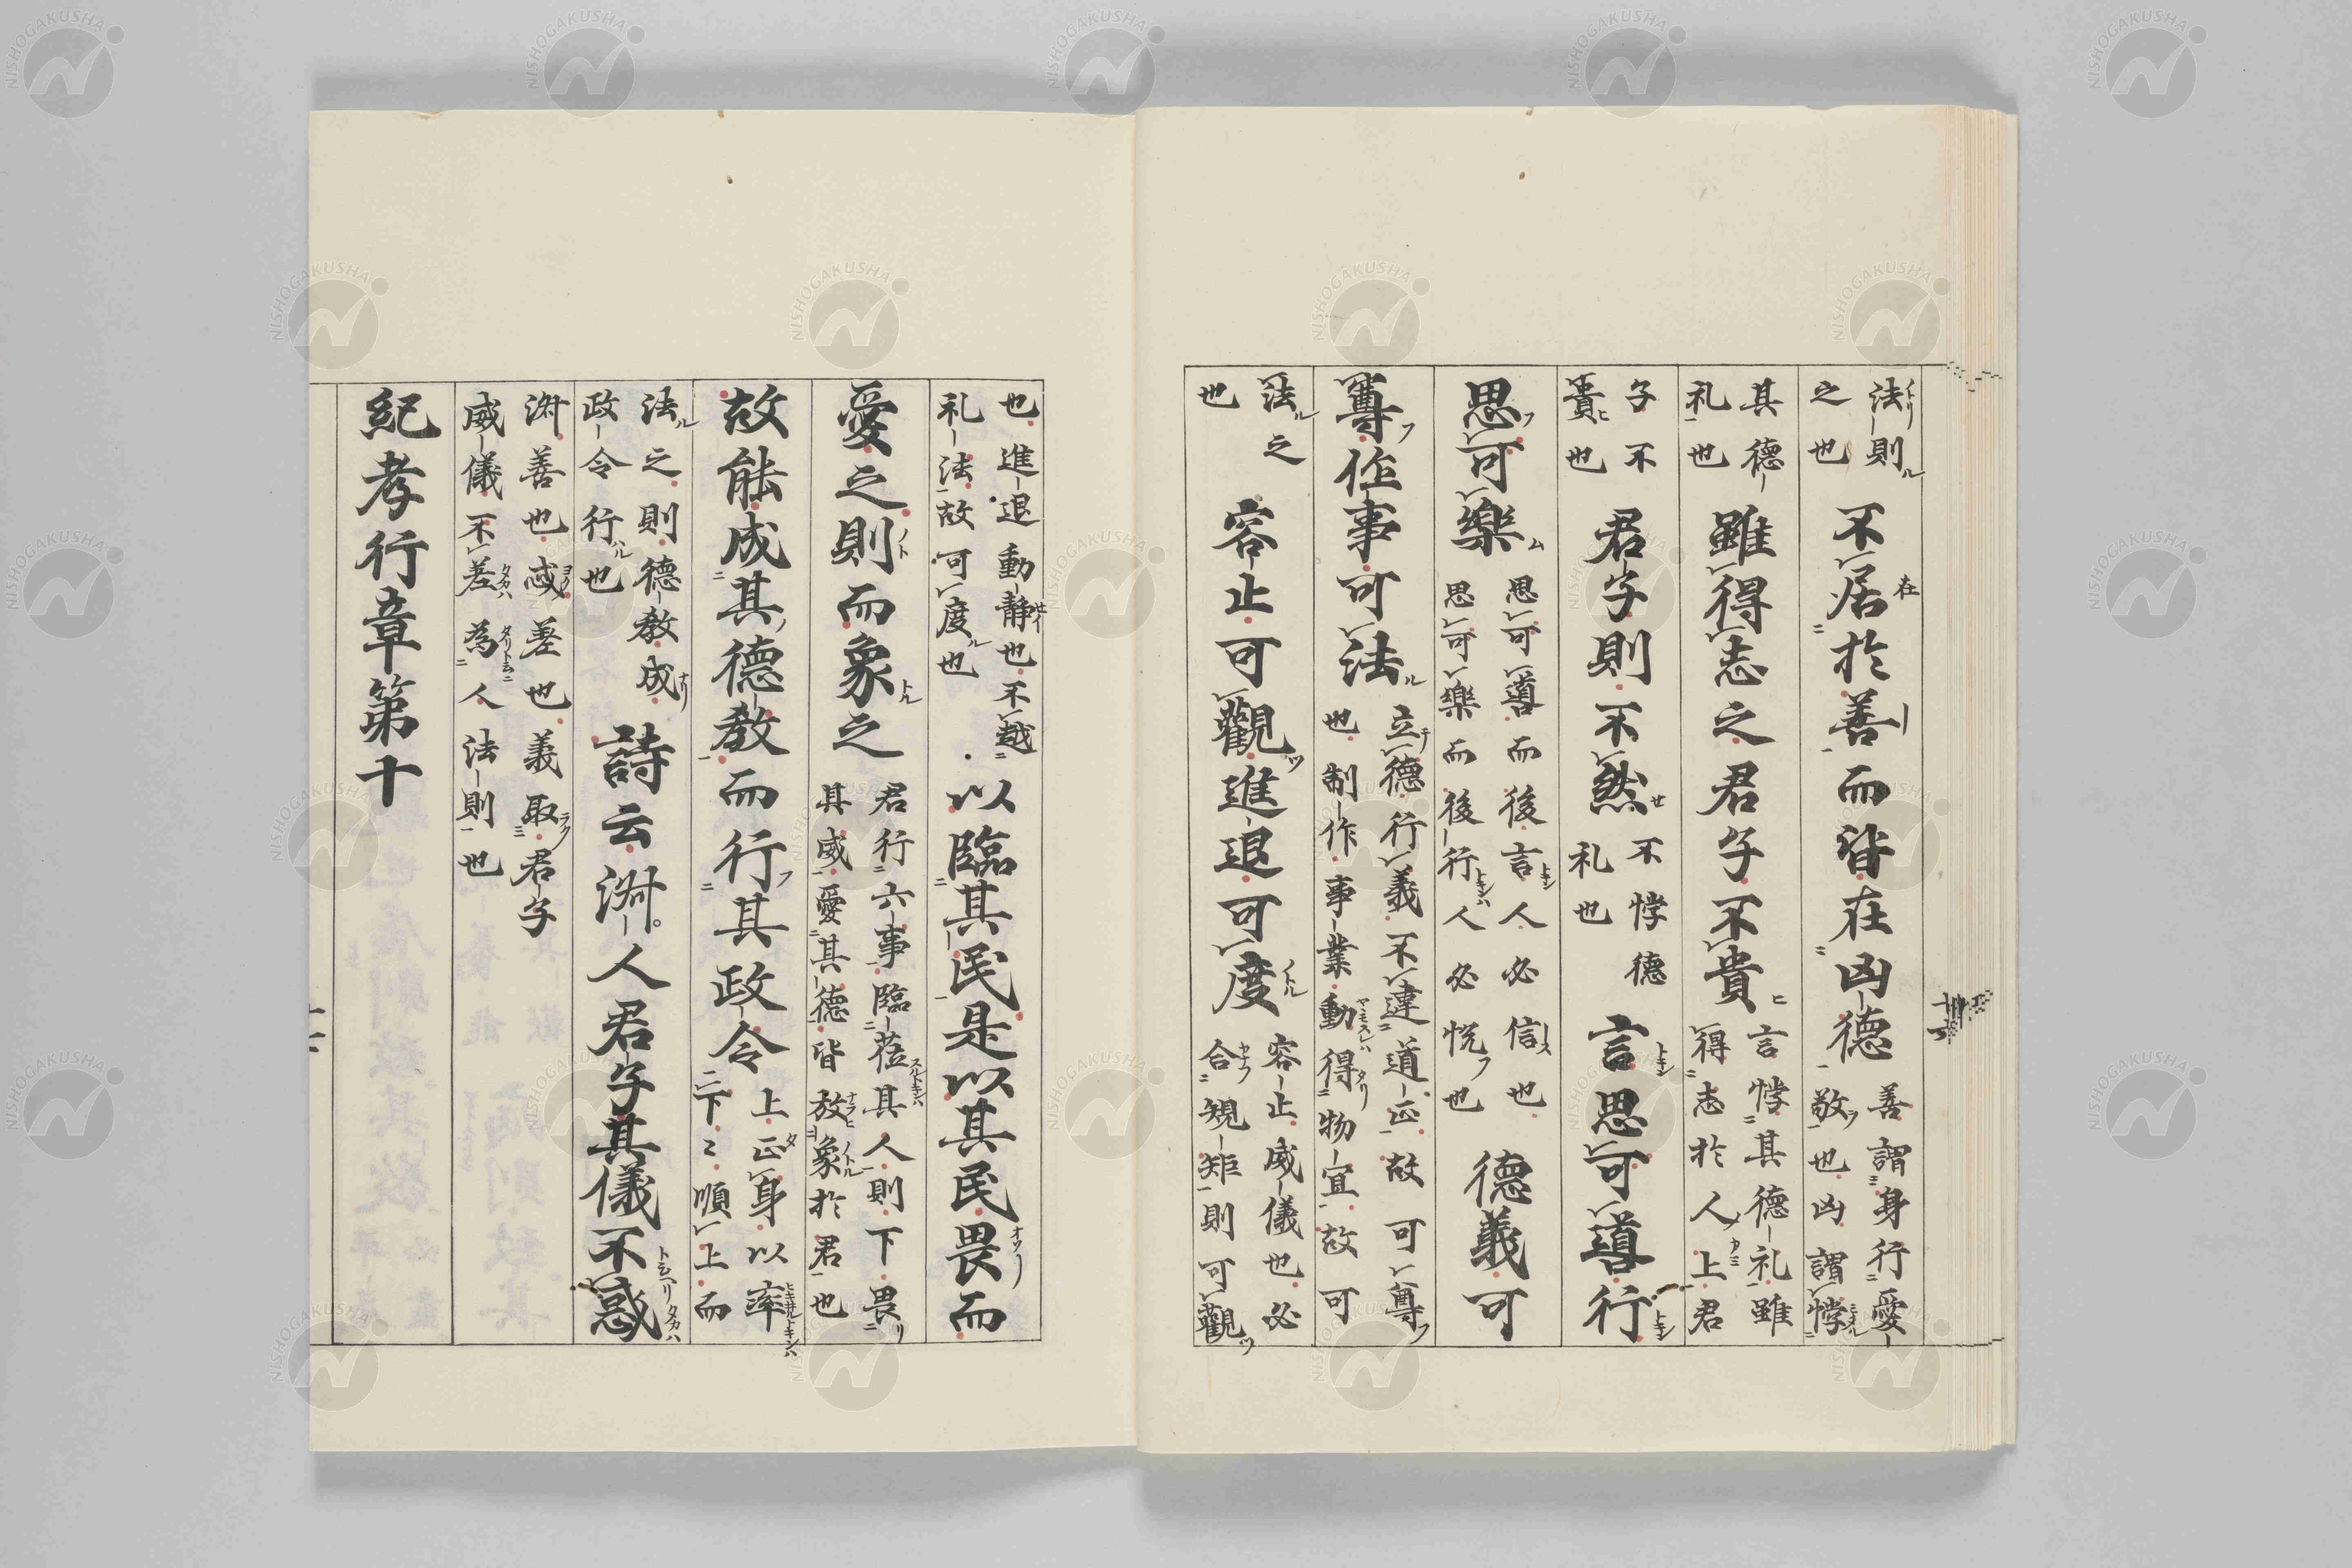 法則
之也
不居於善而皆在凶德
善謂身行愛
敬也凶謂悖
其德
礼也
雖得志之君子不貴
言悖其德礼雖
得志於人上君
子不
貴也
君子則不然
不悖德
礼也
言思可道行
思可樂
思可導而後言人必信也
思可樂而後行人必悦也
德義可
尊作事可法
立德行義不違道正故可尊
也制作事業動得物宜故可
法之
也
容止可觀進退可度
容止威儀也必
合規矩則可觀
也進退動静也不越
礼法故可度也
以臨其民是以其民畏而
愛之則而象之
君行六事臨莅其人則下畏
其威愛其德皆放象於君也
故能成其德教而行其政令
上正身以率
下下順上而
法之則德教成
政令行也
詩云淑人君子其儀不忒
淑善也忒差也義取君子
威儀不差為人法則也
紀孝行章第十
NISHOGAKUSHA